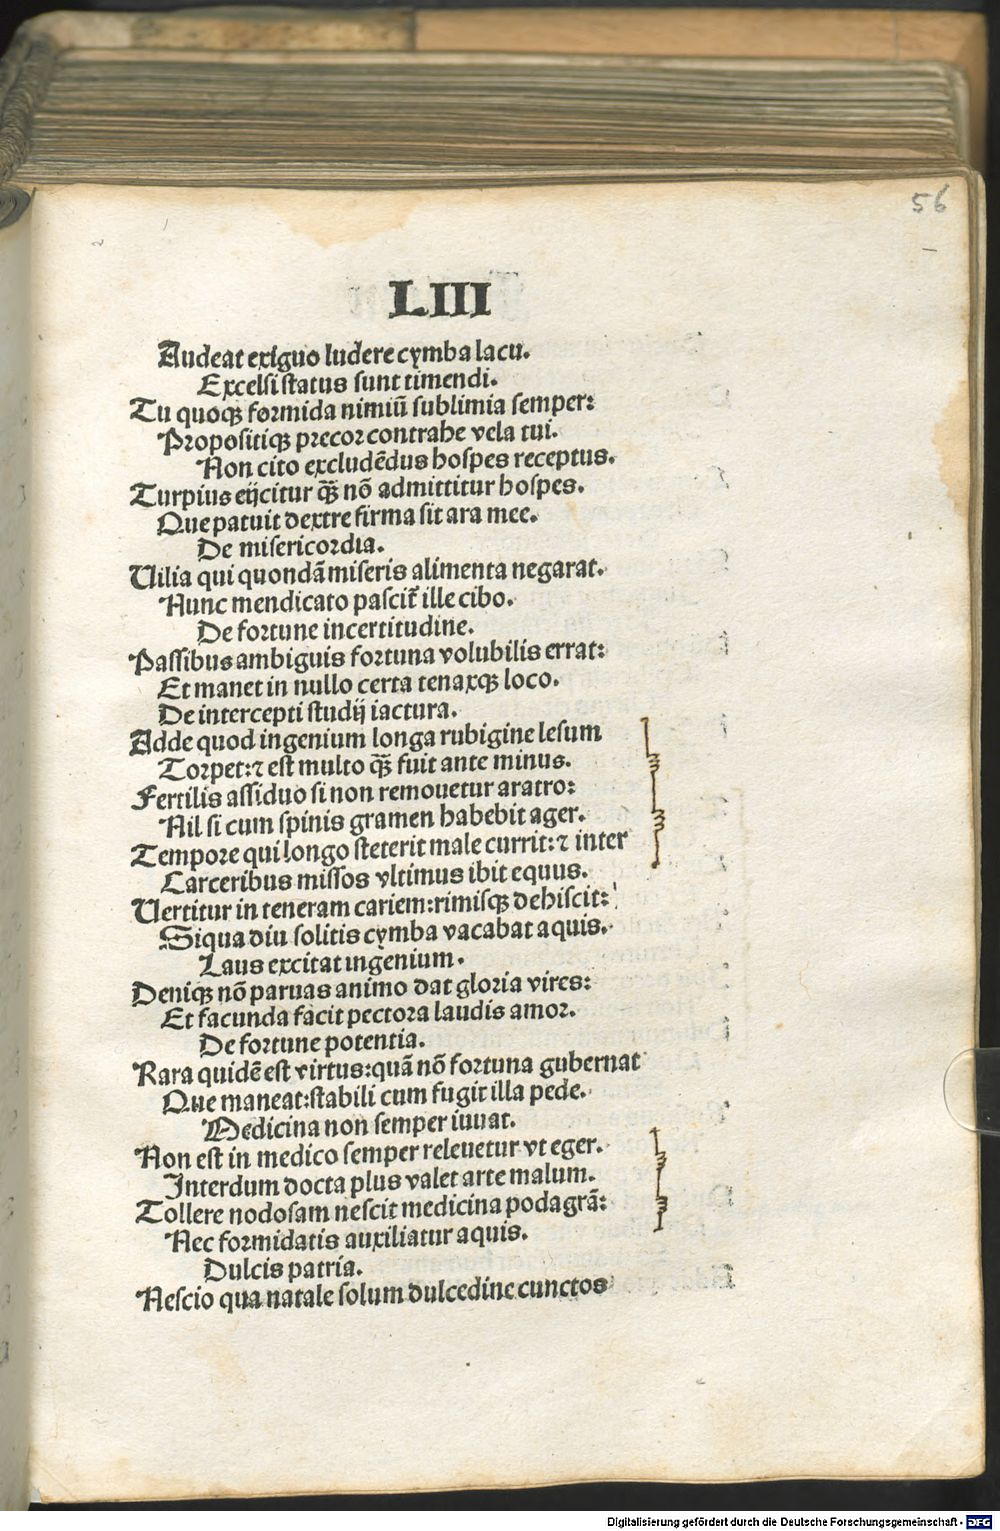 56
LIII
Audeat exiguo ludere cymba lacu.
Excelsi status sunt timendi.
Tu quoqꝫ formida nimiū sublimia semper:
Propositiqꝫ precor contrahe vela tui.
Non cito excludēdus hospes receptus.
Turpius eijcitur qꝫ̄ nō admittitur hospes.
Que patuit dextre firma sit ara mee.
De misericordia.
Uilia qui quondā miseris alimenta negarat.
Nunc mendicato pascit᷑ ille cibo.
De fortune incertitudine.
Passibus ambiguis fortuna volubilis errat:
Et manet in nullo certa tenaxqꝫ loco.
De intercepti studij iactura.
Adde quod ingenium longa rubigine lesum
Torpet: ⁊ est multo qꝫ̄ fuit ante minus.
Fertilis assiduo si non remouetur aratro:
Nil si cum spinis gramen habebit ager.
Tempore qui longo steterit male currit: ⁊ inter
Carceribus missos vltimus ibit equus.
Uertitur in teneram cariem: rimisqꝫ dehiscit:
Siqua diu solitis cymba vacabat aquis.
Laus excitat ingenium.
Deniqꝫ nō paruas animo dat gloria vires:
Et facunda facit pectora laudis amor.
De fortune potentia.
Rara quidē est virtus: quā nō fortuna gubernat
Que maneat: stabili cum fugit illa pede.
Medicina non semper iuuat.
Non est in medico semper releuetur vt eger.
Interdum docta plus valet arte malum.
Tollere nodosam nescit medicina podagrā:
Nec formidatis auxiliatur aquis.
Dulcis patria.
Nescio qua natale solum dulcedine cunctos
Digitalisierung gefördert durch die Deutsche Forschungsgemeinschaft - DFG